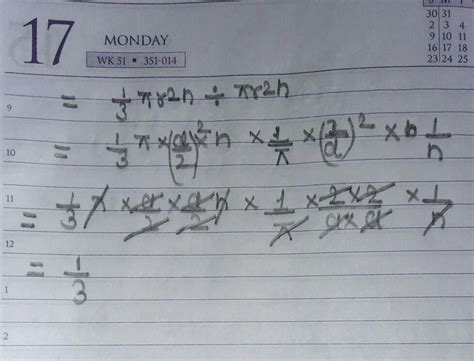 17 MONDAY
WK 51 ▪ 351-014
30 31
2 3 4
9 10 11
16 17 18
23 24 25
9
= 1/3 πr2h ÷ πr2h
10
= 1/3 π × (d/2)^2 × h × 1/π × (2/d)^2 × h 1/h
11
= 1/3 π × d/2 × d/2 h × 1/π × 2×2/d×d × 1/h
12
= 1/3
1
2